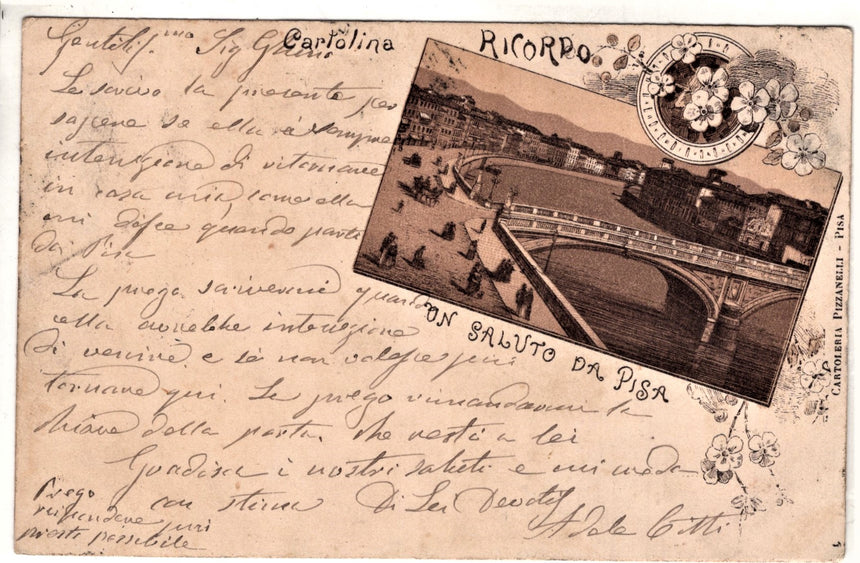 Cartolina RICORDO
Gentilis.mo Sig
Le scrivo la presente per
sapere se ella è sempre
intenzione di ritornare
in casa mia, come ella
mi disse quando partì
da Pisa
La prego scrivermi quando
ella avrebbe intenzione
di venire e se non volesse più
tornare qui. La prego rimandarmi la
chiave della porta, che restò a lei
Gradisca i nostri saluti e mi creda
con stima Di Lei Devots
Adele Citti
Prego
rispondere più
presto possibile
UN SALUTO DA PISA
CARTOLERIA PIZZANELLI - PISA